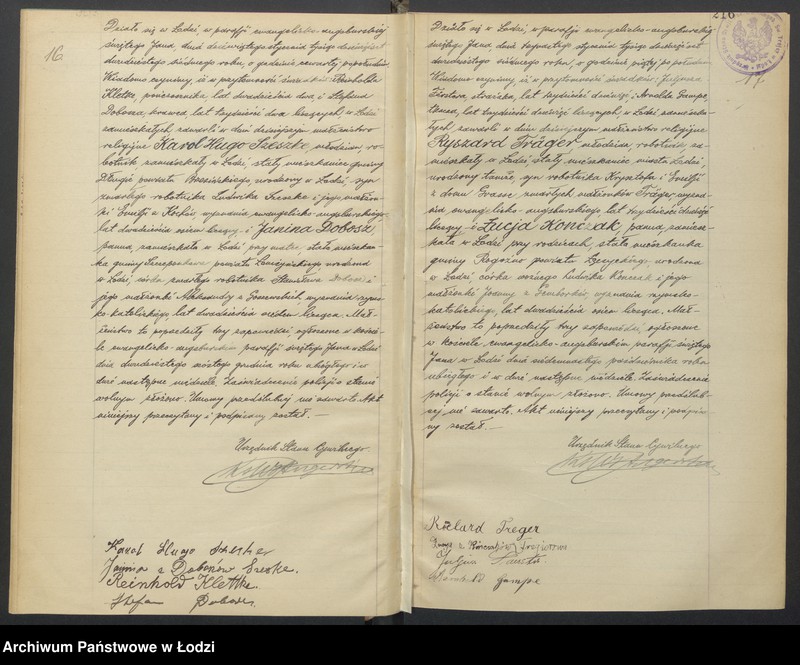 16.
Działo się w Łodzi, w parafji ewangelicko-augsburskiej
świętego Jana, dnia dziewiątego stycznia tysiąc dziewięćset
dwudziestego siódmego roku, o godzinie czwartej popołudniu.
Wiadomo czynimy, iż w przytomności świadków: Reinholda
Klettke, lat dwadzieścia dwa, i Stefana
Dobosza, krawca, lat trzydzieści dwa liczących, w Łodzi
zamieszkałych, zawarto w dniu dzisiejszym małżeństwo
religijne Karol Hugo Szeszke, młodzian, ro-
botnik zamieszkały w Łodzi, stały mieszkaniec gminy
Długie powiatu Brzezińskiego, urodzony w Łodzi, syn
zmarłego robotnika Ludwika Szeszke i jego małżon-
ki Emilji z wyznania ewangelicko-augsburskiego
lat dwadzieścia osiem liczący i Janina Dobosz,
panna, zamieszkała w Łodzi przy matce, stała mieszkan-
ka gminy powiatu urodzona
w Łodzi, córka zmarłego robotnika Stanisława Dobosz i
jego małżonki wyznania rzyms-
ko-katolickiego lat dwadzieścia siedem licząca. Mał-
żeństwo to poprzedziły trzy zapowiedzi, ogłoszone w koście-
le ewangelicko-augsburskim parafji świętego Jana w Łodzi
dnia dwudziestego szóstego grudnia roku ubiegłego i w
dni następne niedziele. Zaświadczenie policji o stanie
wolnym złożono. Umowy przedślubnej nie zawarto. Akt
niniejszy przeczytany i podpisany został. —
Urzędnik Stanu Cywilnego.
Karol Hugo Szeszke
Janina z Doboszów Szeszke.
Reinhold Klettke.
Stefan Dobosz.
216
17
Działo się w Łodzi, w parafji ewangelicko-augsburskiej
świętego Jana, dnia stycznia tysiąc dziewięćset
dwudziestego siódmego roku, o godzinie piątej po południu.
Wiadomo czynimy, iż w przytomności świadków: Juljusza
lat trzydzieści dziewięć i Arnolda Gampe,
tkacza, lat trzydzieści dziewięć liczących, w Łodzi zamieszka-
łych, zawarto w dniu dzisiejszym małżeństwo religijne
Ryszard Träger młodzian, robotnik, za-
mieszkały w Łodzi, stały mieszkaniec miasta Łodzi,
urodzony tamże, syn robotnika Krysztofa i Emilji
z domu zmarłych małżonków Träger, wyzna-
nia ewangelicko-augsburskiego lat trzydzieści
liczący i Łucja Konczak, panna, zamiesz-
kała w Łodzi przy rodzicach, stała mieszkanka
gminy Rogoźno powiatu Łęczyckiego, urodzona
w Łodzi, córka woźnego Ludwika Konczak i jego
małżonki Joanny z wyznania rzymsko-
katolickiego, lat dwadzieścia osiem licząca. Mał-
żeństwo to poprzedziły trzy zapowiedzi, ogłoszone
w kościele ewangelicko-augsburskim parafji świętego
Jana w Łodzi dnia siedemnastego października roku
ubiegłego i w dni następne niedziele. Zaświadczenie
policji o stanie wolnym złożono. Umowy przedślub-
nej nie zawarto. Akt niniejszy przeczytany i podpisa-
ny został. —
Urzędnik Stanu Cywilnego
Treger
z
Gampe
Archiwum Państwowe w Łodzi